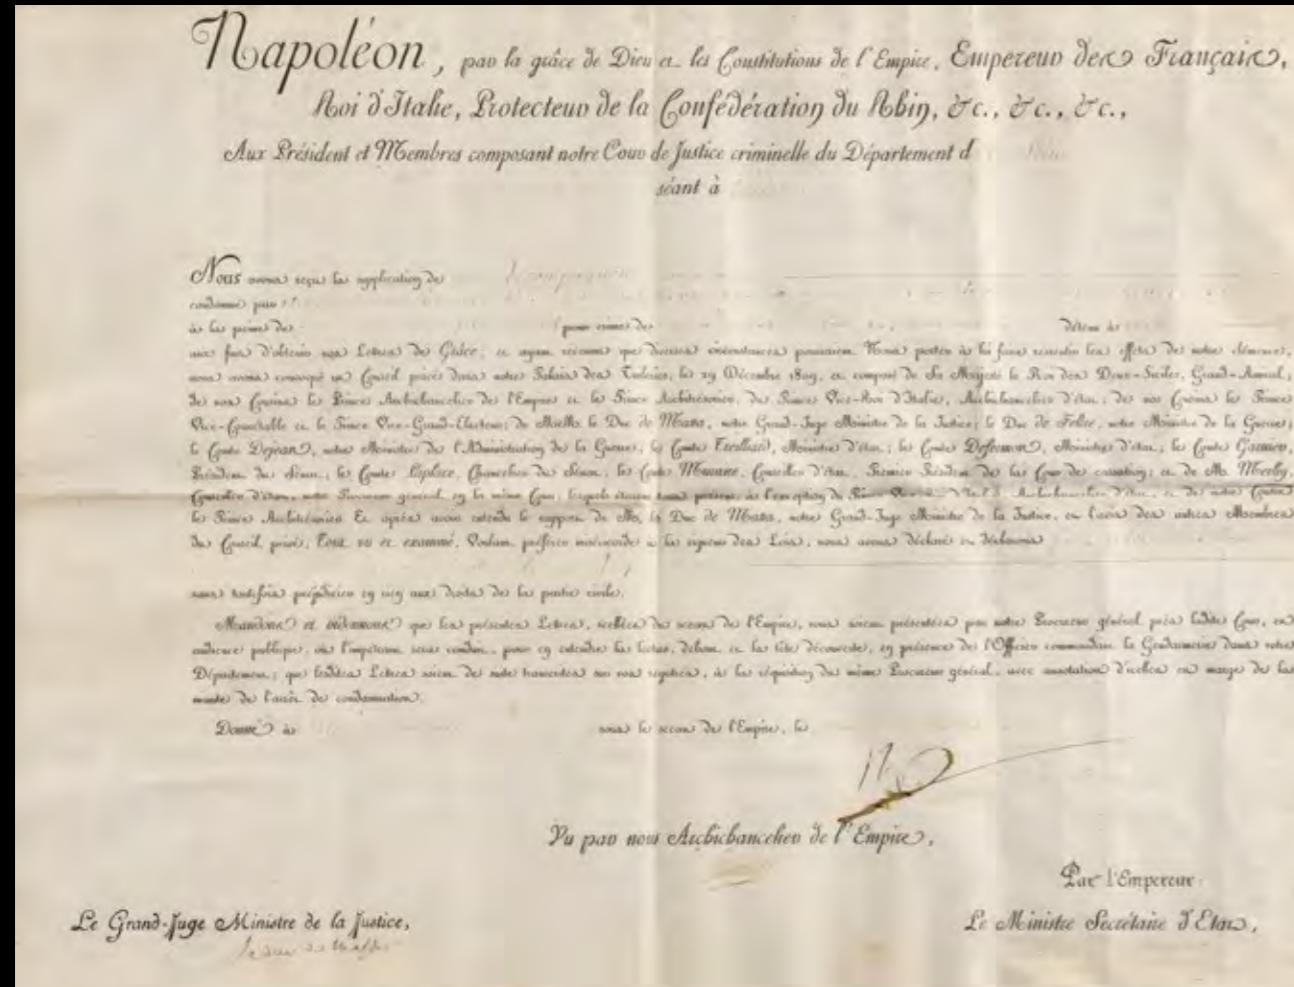 Napoléon, par la grâce de Dieu et les Constitutions de l'Empire, Empereur des Français,
Roi d'Italie, Protecteur de la Confédération du Rhin, &c., &c., &c.,
Aux Président et Membres composant notre Cour de Justice criminelle du Département d
séant à
Nous avons reçu la supplication de
condamné par
à la peine de pour crime de détenu à
aux fins d'obtenir nos Lettres de Grâce; et ayant reconnu que diverses circonstances pouvaient Nous porter à lui faire ressentir les effets de notre clémence,
nous avons convoqué un Conseil privé dans notre Palais des Tuileries, le 29 Décembre 1809, et composé de Sa Majesté le Roi des Deux-Siciles, Grand-Amiral;
de nos Cousins le Prince Archichancelier de l'Empire et le Prince Architrésorier, du Prince Vice-Roi d'Italie, Archichancelier d'état; de nos Cousins le Prince
Vice-Connétable et le Prince Vice-Grand-Electeur; de MM. le Duc de Massa, notre Grand-Juge Ministre de la Justice; le Duc de Feltre, notre Ministre de la Guerre;
le Comte Dejean, notre Ministre de l'Administration de la Guerre; le Comte Treilhard, Ministre d'état; le Comte Defermon, Ministre d'état; le Comte Garnier,
Président du Sénat; le Comte Laplace, Chancelier du Sénat; le Comte Muraire, Conseiller d'état, Premier Président de la Cour de cassation; et de M. Merlin,
Conseiller d'état, notre Procureur général en la même Cour, lesquels étaient tous présens à l'exception du Prince Archichancelier d'état, et de notre Cousin
le Prince Architrésorier. Et après avoir entendu le rapport de M. le Duc de Massa, notre Grand-Juge Ministre de la Justice, et l'avis des autres Membres
du Conseil privé, Tout vu et examiné, Voulant préférer miséricorde à la rigueur des Lois, nous avons déclaré et déclarons
sans toutefois préjudicier en rien aux droits de la partie civile.
Mandons et ordonnons que les présentes Lettres, scellées du sceau de l'Empire, vous soient présentées par notre Procureur général près ladite Cour, en
audience publique, où l'impétrant sera conduit pour en entendre la lecture, debout et la tête découverte, en présence de l'Officier commandant la Gendarmerie dans votre
Département; que lesdites Lettres soient de suite transcrites sur vos registres, à la réquisition du même Procureur général, avec annotation d'icelles en marge de la
minute de l'arrêt de condamnation.
Donné à sous le sceau de l'Empire, le
Vu par nous Archichancelier de l'Empire,
Par l'Empereur:
Le Grand-Juge Ministre de la Justice, Le Ministre Secrétaire d'Etat,